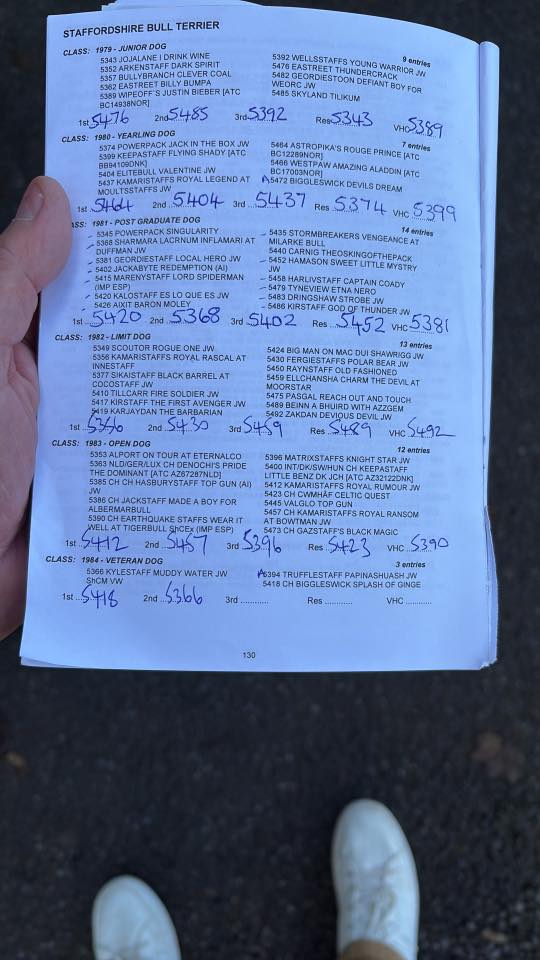 STAFFORDSHIRE BULL TERRIER
CLASS: 1979 - JUNIOR DOG 9 entries
5343 JOJALANE I DRINK WINE
5352 ARKENSTAFF DARK SPIRIT
5357 BULLYBRANCH CLEVER COAL
5362 EASTREET BILLY BUMPA
5389 WIPEOFF'S JUSTIN BIEBER [ATC
BC14938NOR]
5392 WELLSSTAFFS YOUNG WARRIOR JW
5476 EASTREET THUNDERCRACK
5482 GEORDIESTOON DEFIANT BOY FOR
WEORC JW
5485 SKYLAND TILIKUM
1st 5476 2nd 5485 3rd 5392 Res 5343 VHC 5389
CLASS: 1980 - YEARLING DOG 7 entries
5374 POWERPACK JACK IN THE BOX JW
5399 KEEPASTAFF FLYING SHADY [ATC
BB94109DNK]
5404 ELITEBULL VALENTINE JW
5437 KAMARISTAFFS ROYAL LEGEND AT
MOULTSSTAFFS JW
5464 ASTROPIKA'S ROUGE PRINCE [ATC
BC12289NOR]
5466 WESTPAW AMAZING ALADDIN [ATC
BC17003NOR]
A 5472 BIGGLESWICK DEVILS DREAM
1st 5464 2nd 5404 3rd 5437 Res 5374 VHC 5399
CLASS: 1981 - POST GRADUATE DOG 14 entries
5345 POWERPACK SINGULARITY
5368 SHARMARA LACRNUM INFLAMARI AT
DUFFMAN JW
5381 GEORDIESTAFF LOCAL HERO JW
5402 JACKABYTE REDEMPTION (AI)
5415 MARENYSTAFF LORD SPIDERMAN
(IMP ESP)
5420 KALOSTAFF ES LO QUE ES JW
5426 AIXIT BARON MOLEY
5435 STORMBREAKERS VENGEANCE AT
MILARKE BULL
5440 CARNIG THEOSKINGOFTHEPACK
5452 HAMASON SWEET LITTLE MYSTRY
JW
5458 HARLIVSTAFF CAPTAIN COADY
5479 TYNEVIEW ETNA NERO
5483 DRINGSHAW STROBE JW
5486 KIRSTAFF GOD OF THUNDER JW
1st 5420 2nd 5368 3rd 5402 Res 5452 VHC 5381
CLASS: 1982 - LIMIT DOG 13 entries
5349 SCOUTOR ROGUE ONE JW
5356 KAMARISTAFFS ROYAL RASCAL AT
INNESTAFF
5377 SIKAISTAFF BLACK BARREL AT
COCOSTAFF JW
5410 TILLCARR FIRE SOLDIER JW
5417 KIRSTAFF THE FIRST AVENGER JW
5419 KARJAYDAN THE BARBARIAN
5424 BIG MAN ON MAC DUI SHAWRIGG JW
5430 FERGIESTAFFS POLAR BEAR JW
5450 RAYNSTAFF OLD FASHIONED
5459 ELLCHANSHA CHARM THE DEVIL AT
MOORSTAR
5475 PASGAL REACH OUT AND TOUCH
5489 BEINN A BHUIRD WITH AZZGEM
5492 ZAKDAN DEVIOUS DEVIL JW
1st 5356 2nd 5430 3rd 5459 Res 5489 VHC 5492
CLASS: 1983 - OPEN DOG 12 entries
5353 ALPORT ON TOUR AT ETERNALCO
5363 NLD/GER/LUX CH DENOCHI'S PRIDE
THE DOMINANT [ATC AZ67287NLD]
5385 CH CH HASBURYSTAFF TOP GUN (AI)
JW
5386 CH JACKSTAFF MADE A BOY FOR
ALBERMARBULL
5390 CH EARTHQUAKE STAFFS WEAR IT
WELL AT TIGERBULL ShCEx (IMP ESP)
5396 MATRIXSTAFFS KNIGHT STAR JW
5400 INT/DK/SW/HUN CH KEEPASTAFF
LITTLE BENZ DK JCH [ATC AZ32122DNK]
5412 KAMARISTAFFS ROYAL RUMOUR JW
5423 CH CWMHAF CELTIC QUEST
5445 VALGLO TOP GUN
5457 CH KAMARISTAFFS ROYAL RANSOM
AT BOWTMAN JW
5473 CH GAZSTAFF'S BLACK MAGIC
1st 5412 2nd 5457 3rd 5396 Res 5423 VHC 5390
CLASS: 1984 - VETERAN DOG 3 entries
5366 KYLESTAFF MUDDY WATER JW
ShCM VW
A 5394 TRUFFLESTAFF PAPINASHUASH JW
5418 CH BIGGLESWICK SPLASH OF GINGE
1st 5418 2nd 5366 3rd ............ Res ............ VHC ............
130